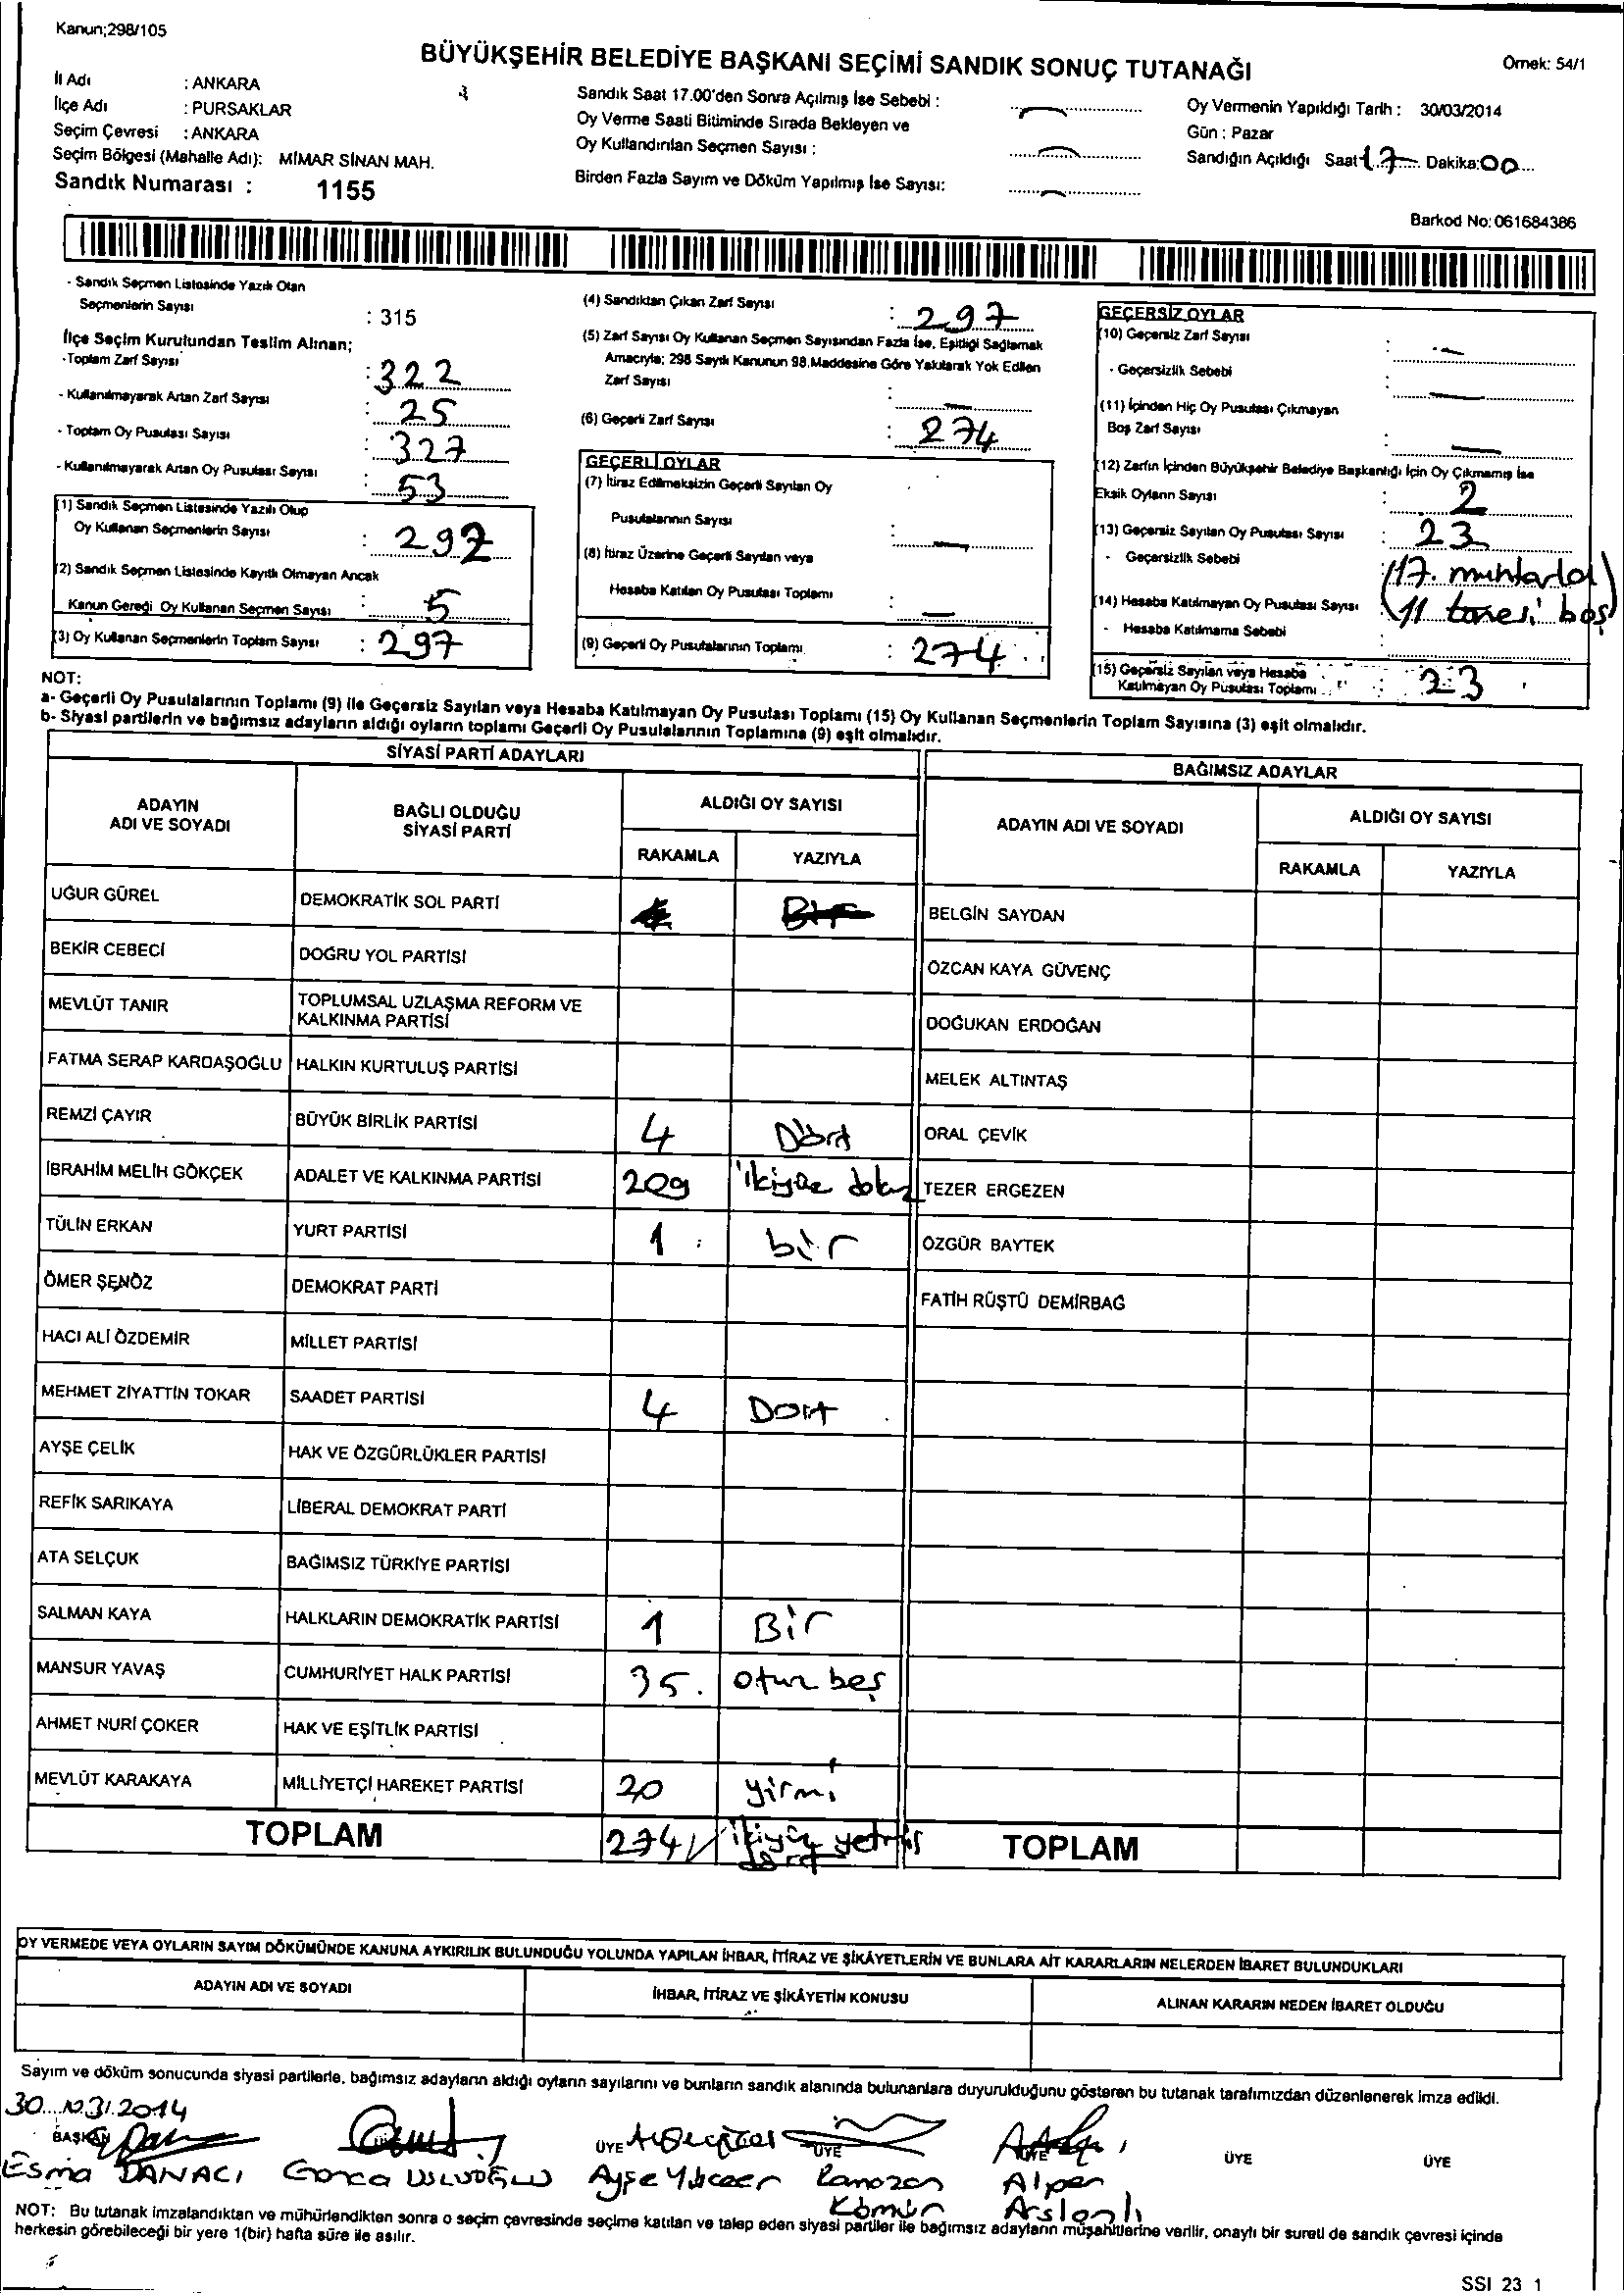 Kanun;298/105
BÜYÜKŞEHİR BELEDİYE BAŞKANI SEÇİMİ SANDIK SONUÇ TUTANAĞI
Örnek: 54/1
İl Adı : ANKARA
İlçe Adı : PURSAKLAR
Seçim Çevresi : ANKARA
Seçim Bölgesi (Mahalle Adı): MİMAR SİNAN MAH.
Sandık Numarası : 1155
Sandık Saat 17.00'den Sonra Açılmış İse Sebebi :
Oy Verme Saati Bitiminde Sırada Bekleyen ve
Oy Kullandırılan Seçmen Sayısı :
Birden Fazla Sayım ve Döküm Yapılmış İse Sayısı:
Oy Vermenin Yapıldığı Tarih : 30/03/2014
Gün : Pazar
Sandığın Açıldığı Saat 17 Dakika: 00
Barkod No: 061684386
- Sandık Seçmen Listesinde Yazılı Olan
Seçmenlerin Sayısı : 315
İlçe Seçim Kurulundan Teslim Alınan;
-Toplam Zarf Sayısı : 322
- Kullanılmayarak Artan Zarf Sayısı : 25
- Toplam Oy Pusulası Sayısı : 327
- Kullanılmayarak Artan Oy Pusulası Sayısı : 53
(1) Sandık Seçmen Listesinde Yazılı Olup
Oy Kullanan Seçmenlerin Sayısı : 292
(2) Sandık Seçmen Listesinde Kayıtlı Olmayan Ancak
Kanun Gereği Oy Kullanan Seçmen Sayısı : 5
(3) Oy Kullanan Seçmenlerin Toplam Sayısı : 297
(4) Sandıktan Çıkan Zarf Sayısı : 297
(5) Zarf Sayısı Oy Kullanan Seçmen Sayısından Fazla İse, Eşitliği Sağlamak
Amacıyla; 298 Sayılı Kanunun 98.Maddesine Göre Yakılarak Yok Edilen
Zarf Sayısı : —
(6) Geçerli Zarf Sayısı : 274
GEÇERLİ OYLAR
(7) İtiraz Edilmeksizin Geçerli Sayılan Oy
Pusulalarının Sayısı : —
(8) İtiraz Üzerine Geçerli Sayılan veya
Hesaba Katılan Oy Pusulası Toplamı : —
(9) Geçerli Oy Pusulalarının Toplamı : 274
GEÇERSİZ OYLAR
(10) Geçersiz Zarf Sayısı : —
- Geçersizlik Sebebi : —
(11) İçinden Hiç Oy Pusulası Çıkmayan
Boş Zarf Sayısı : —
(12) Zarfın İçinden Büyükşehir Belediye Başkanlığı İçin Oy Çıkmamış İse
Eksik Oyların Sayısı : 2
(13) Geçersiz Sayılan Oy Pusulası Sayısı : 23
- Geçersizlik Sebebi :
(14) Hesaba Katılmayan Oy Pusulası Sayısı : (11 tanesi boş)
- Hesaba Katılmama Sebebi :
(15) Geçersiz Sayılan veya Hesaba
Katılmayan Oy Pusulası Toplamı : 23
NOT:
a- Geçerli Oy Pusulalarının Toplamı (9) ile Geçersiz Sayılan veya Hesaba Katılmayan Oy Pusulası Toplamı (15) Oy Kullanan Seçmenlerin Toplam Sayısına (3) eşit olmalıdır.
b- Siyasi partilerin ve bağımsız adayların aldığı oyların toplamı Geçerli Oy Pusulalarının Toplamına (9) eşit olmalıdır.
SİYASİ PARTİ ADAYLARI
BAĞIMSIZ ADAYLAR
ADAYIN ADI VE SOYADI
BAĞLI OLDUĞU SİYASİ PARTİ
ALDIĞI OY SAYISI
RAKAMLA YAZIYLA
ADAYIN ADI VE SOYADI
ALDIĞI OY SAYISI
RAKAMLA YAZIYLA
UĞUR GÜREL DEMOKRATİK SOL PARTİ BELGİN SAYDAN
BEKİR CEBECİ DOĞRU YOL PARTİSİ ÖZCAN KAYA GÜVENÇ
MEVLÜT TANIR TOPLUMSAL UZLAŞMA REFORM VE KALKINMA PARTİSİ DOĞUKAN ERDOĞAN
FATMA SERAP KARDAŞOĞLU HALKIN KURTULUŞ PARTİSİ MELEK ALTINTAŞ
REMZİ ÇAYIR BÜYÜK BİRLİK PARTİSİ 4 Dört ORAL ÇEVİK
İBRAHİM MELİH GÖKÇEK ADALET VE KALKINMA PARTİSİ 209 ikiyüz dokuz TEZER ERGEZEN
TÜLİN ERKAN YURT PARTİSİ 1 bir ÖZGÜR BAYTEK
ÖMER ŞENÖZ DEMOKRAT PARTİ FATİH RÜŞTÜ DEMİRBAĞ
HACI ALİ ÖZDEMİR MİLLET PARTİSİ
MEHMET ZİYATTİN TOKAR SAADET PARTİSİ 4 Dört
AYŞE ÇELİK HAK VE ÖZGÜRLÜKLER PARTİSİ
REFİK SARIKAYA LİBERAL DEMOKRAT PARTİ
ATA SELÇUK BAĞIMSIZ TÜRKİYE PARTİSİ
SALMAN KAYA HALKLARIN DEMOKRATİK PARTİSİ 1 Bir
MANSUR YAVAŞ CUMHURİYET HALK PARTİSİ 35 otuz beş
AHMET NURİ ÇOKER HAK VE EŞİTLİK PARTİSİ
MEVLÜT KARAKAYA MİLLİYETÇİ HAREKET PARTİSİ 20 yirmi
TOPLAM 274 ikiyüz yetmiş dört TOPLAM
OY VERMEDE VEYA OYLARIN SAYIM DÖKÜMÜNDE KANUNA AYKIRILIK BULUNDUĞU YOLUNDA YAPILAN İHBAR, İTİRAZ VE ŞİKÂYETLERİN VE BUNLARA AİT KARARLARIN NELERDEN İBARET BULUNDUKLARI
ADAYIN ADI VE SOYADI İHBAR, İTİRAZ VE ŞİKÂYETİN KONUSU ALINAN KARARIN NEDEN İBARET OLDUĞU
Sayım ve döküm sonucunda siyasi partilerle, bağımsız adayların aldığı oyların sayılarını ve bunların sandık alanında bulunanlara duyurulduğunu gösteren bu tutanak tarafımızdan düzenlenerek imza edildi.
30 03/2014
BAŞKAN ÜYE ÜYE ÜYE ÜYE ÜYE
Esma DANACI Gonca Ayşe Yüceer Ramazan Kömür Alper Arslanlı
NOT: Bu tutanak imzalandıktan ve mühürlendikten sonra o seçim çevresinde seçime katılan ve talep eden siyasi partiler ile bağımsız adayların müşahitlerine verilir, onaylı bir sureti de sandık çevresi içinde
herkesin görebileceği bir yere 1(bir) hafta süre ile asılır.
SSI 23 1